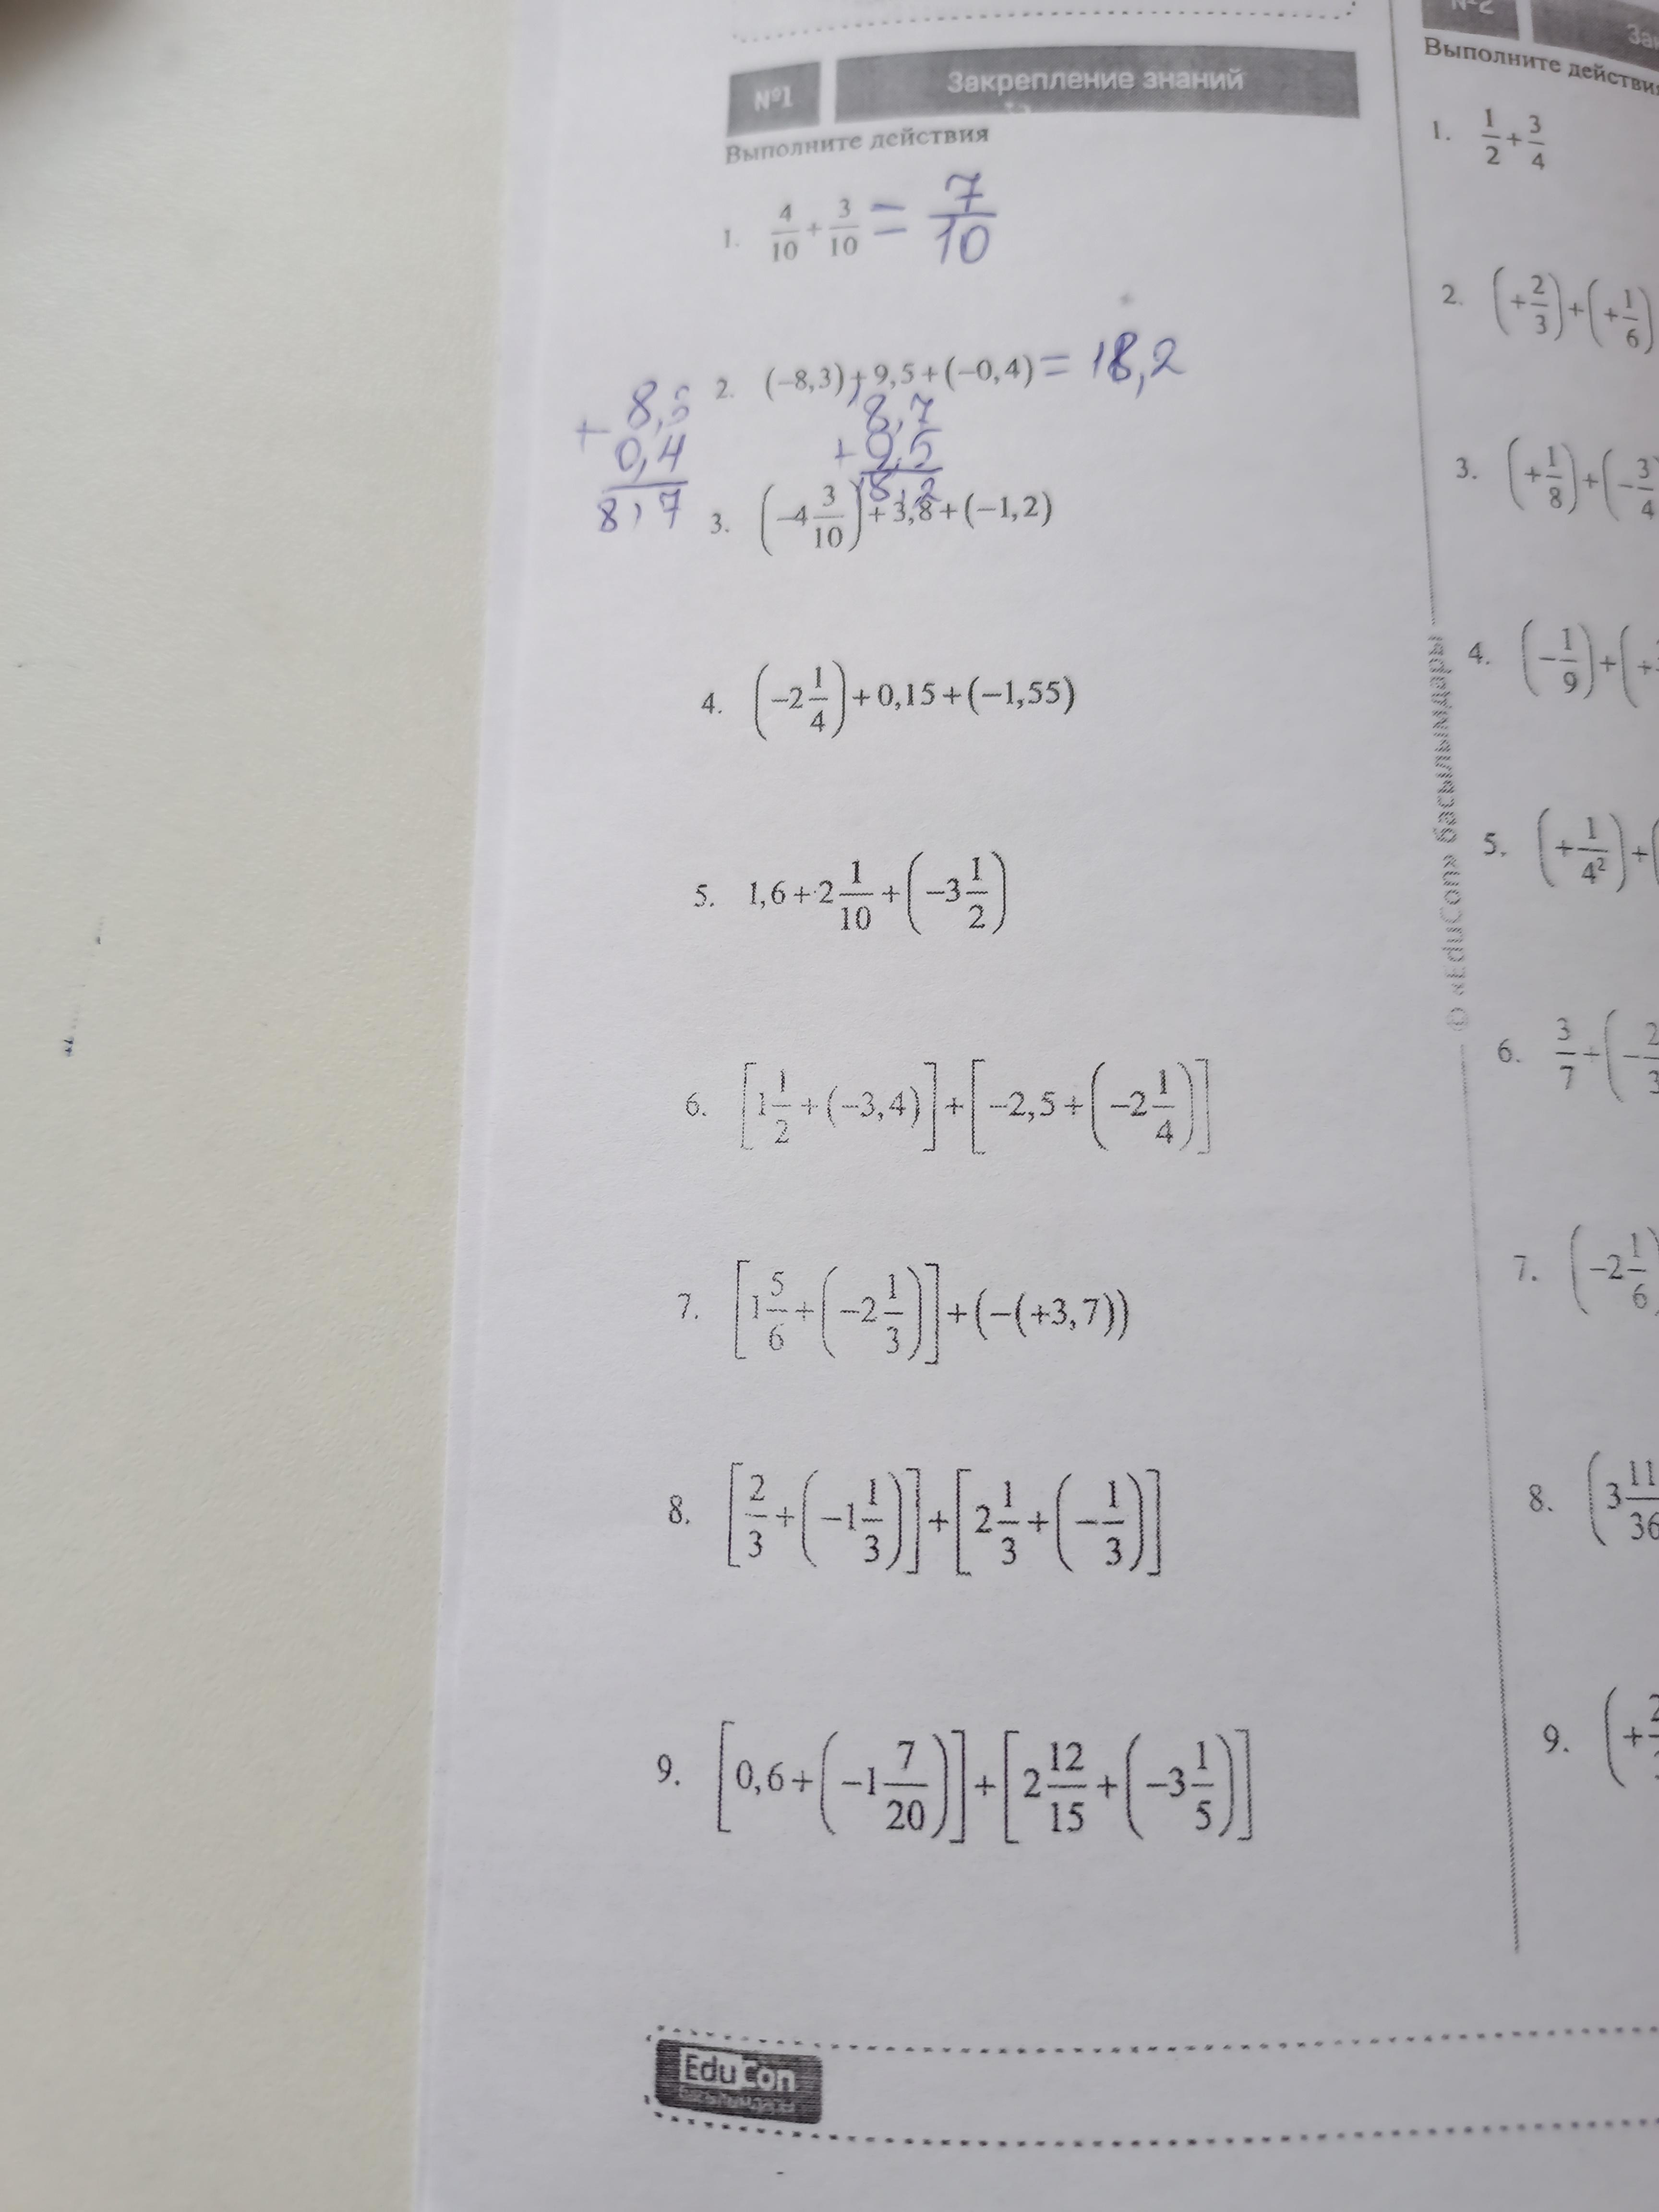 №1 Закрепление знаний
Выполните действия
1. 4/10 + 3/10 = 7/10
2. (−8,3) + 9,5 + (−0,4) = 18,2
+ 8,3
0,4
8,7
8,7
+ 9,5
18,2
3. (−4 3/10) + 3,8 + (−1,2)
4. (−2 1/4) + 0,15 + (−1,55)
5. 1,6 + 2 1/10 + (−3 1/2)
6. [1 1/2 + (−3,4)] + [−2,5 + (−2 1/4)]
7. [1 5/6 + (−2 1/3)] + (−(+3,7))
8. [2/3 + (−1 1/3)] + [2 1/3 + (−1/3)]
9. [0,6 + (−1 7/20)] + [2 12/15 + (−3 1/5)]
EduCon
© «EduCon» басылымдары
№2 Зак
Выполните действия
1. 1/2 + 3/4
2. (+2/3) + (+1/6)
3. (+1/8) + (−3/4
4. (−1/9) + (+
5. (+1/4²) + (
6. 3/7 + (−2/3
7. (−2 1/6)
8. (3 11/36
9. (+2